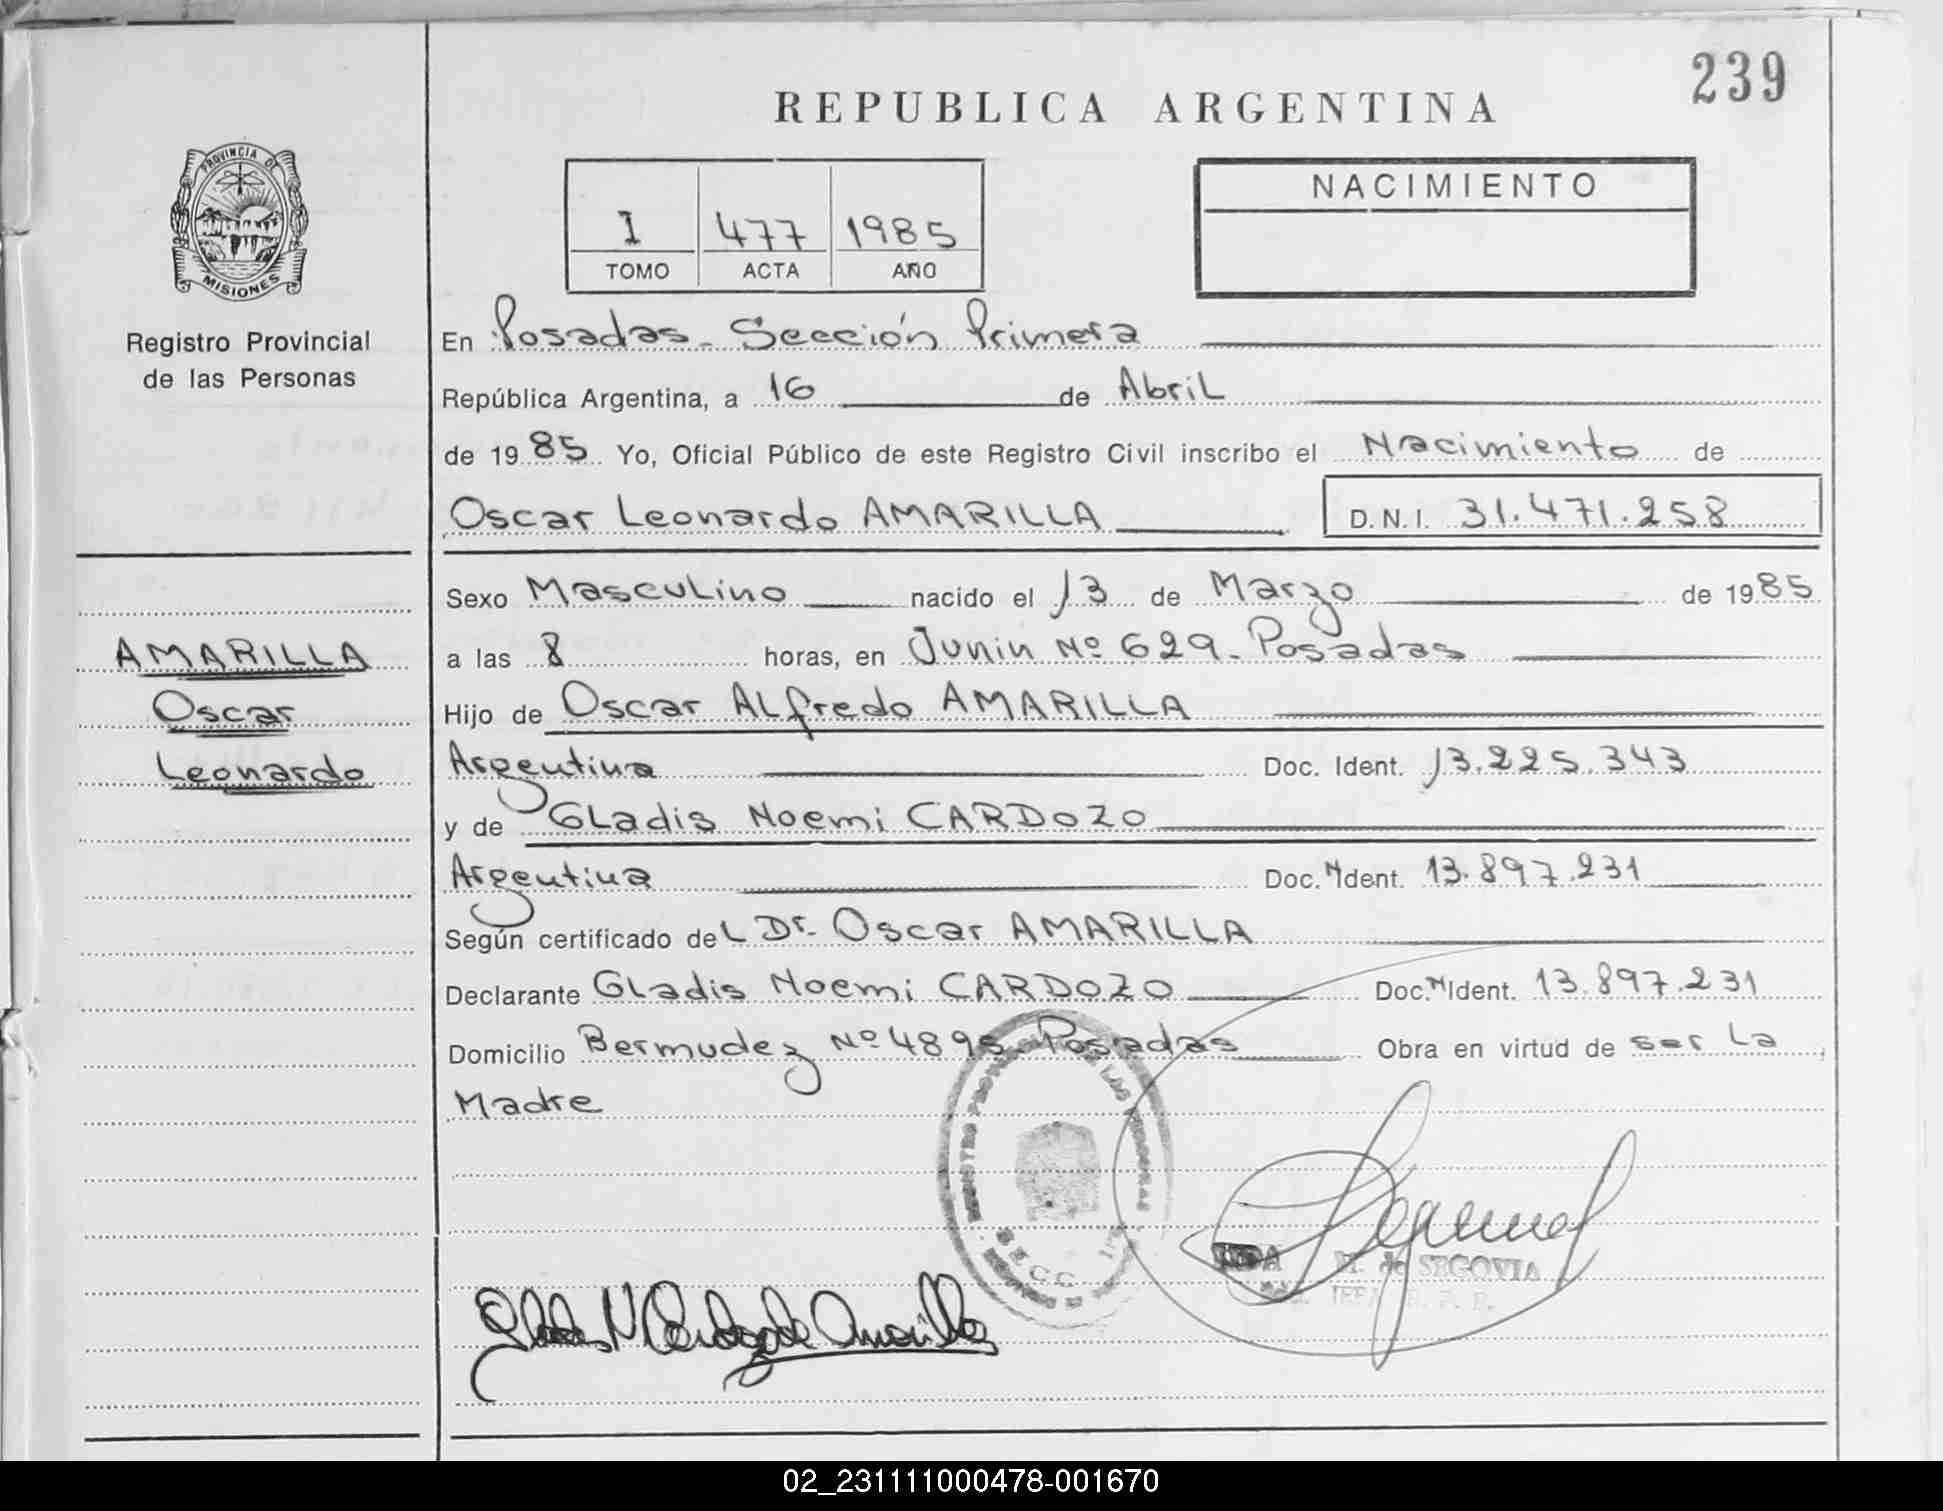 239
REPUBLICA ARGENTINA
PROVINCIA DE
MISIONES
Registro Provincial
de las Personas
I 477 1985
TOMO ACTA AÑO
NACIMIENTO
En Posadas - Sección Primera
República Argentina, a 16 de Abril
de 1985 Yo, Oficial Público de este Registro Civil inscribo el Nacimiento de
Oscar Leonardo AMARILLA D.N.I. 31.471.258
AMARILLA
Oscar
Leonardo
Sexo Masculino nacido el 13 de Marzo de 1985
a las 8 horas, en Junin Nº 629 - Posadas
Hijo de Oscar Alfredo AMARILLA
Argentina Doc. Ident. 13.225.343
y de Gladis Noemi CARDOZO
Argentina Doc. Ident. 13.897.231
Según certificado del Dr. Oscar AMARILLA
Declarante Gladis Noemi CARDOZO Doc. Ident. 13.897.231
Domicilio Bermudez Nº 4895 Posadas Obra en virtud de ser la
Madre
M. de SEGOVIA
02_231111000478-001670